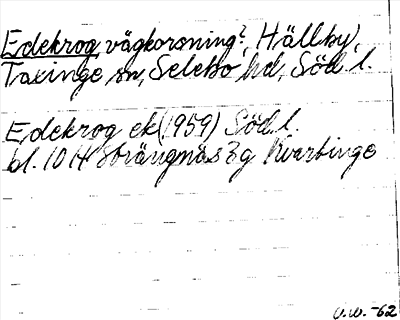 Edekrog vägkorsning?, Hällby,
Taxinge sn, Selebo hd, Söd. l.
Edekrog ek(1959) Söd. l.
bl. 10 H Strängnäs 3g Kvarbinge
V.W. -62